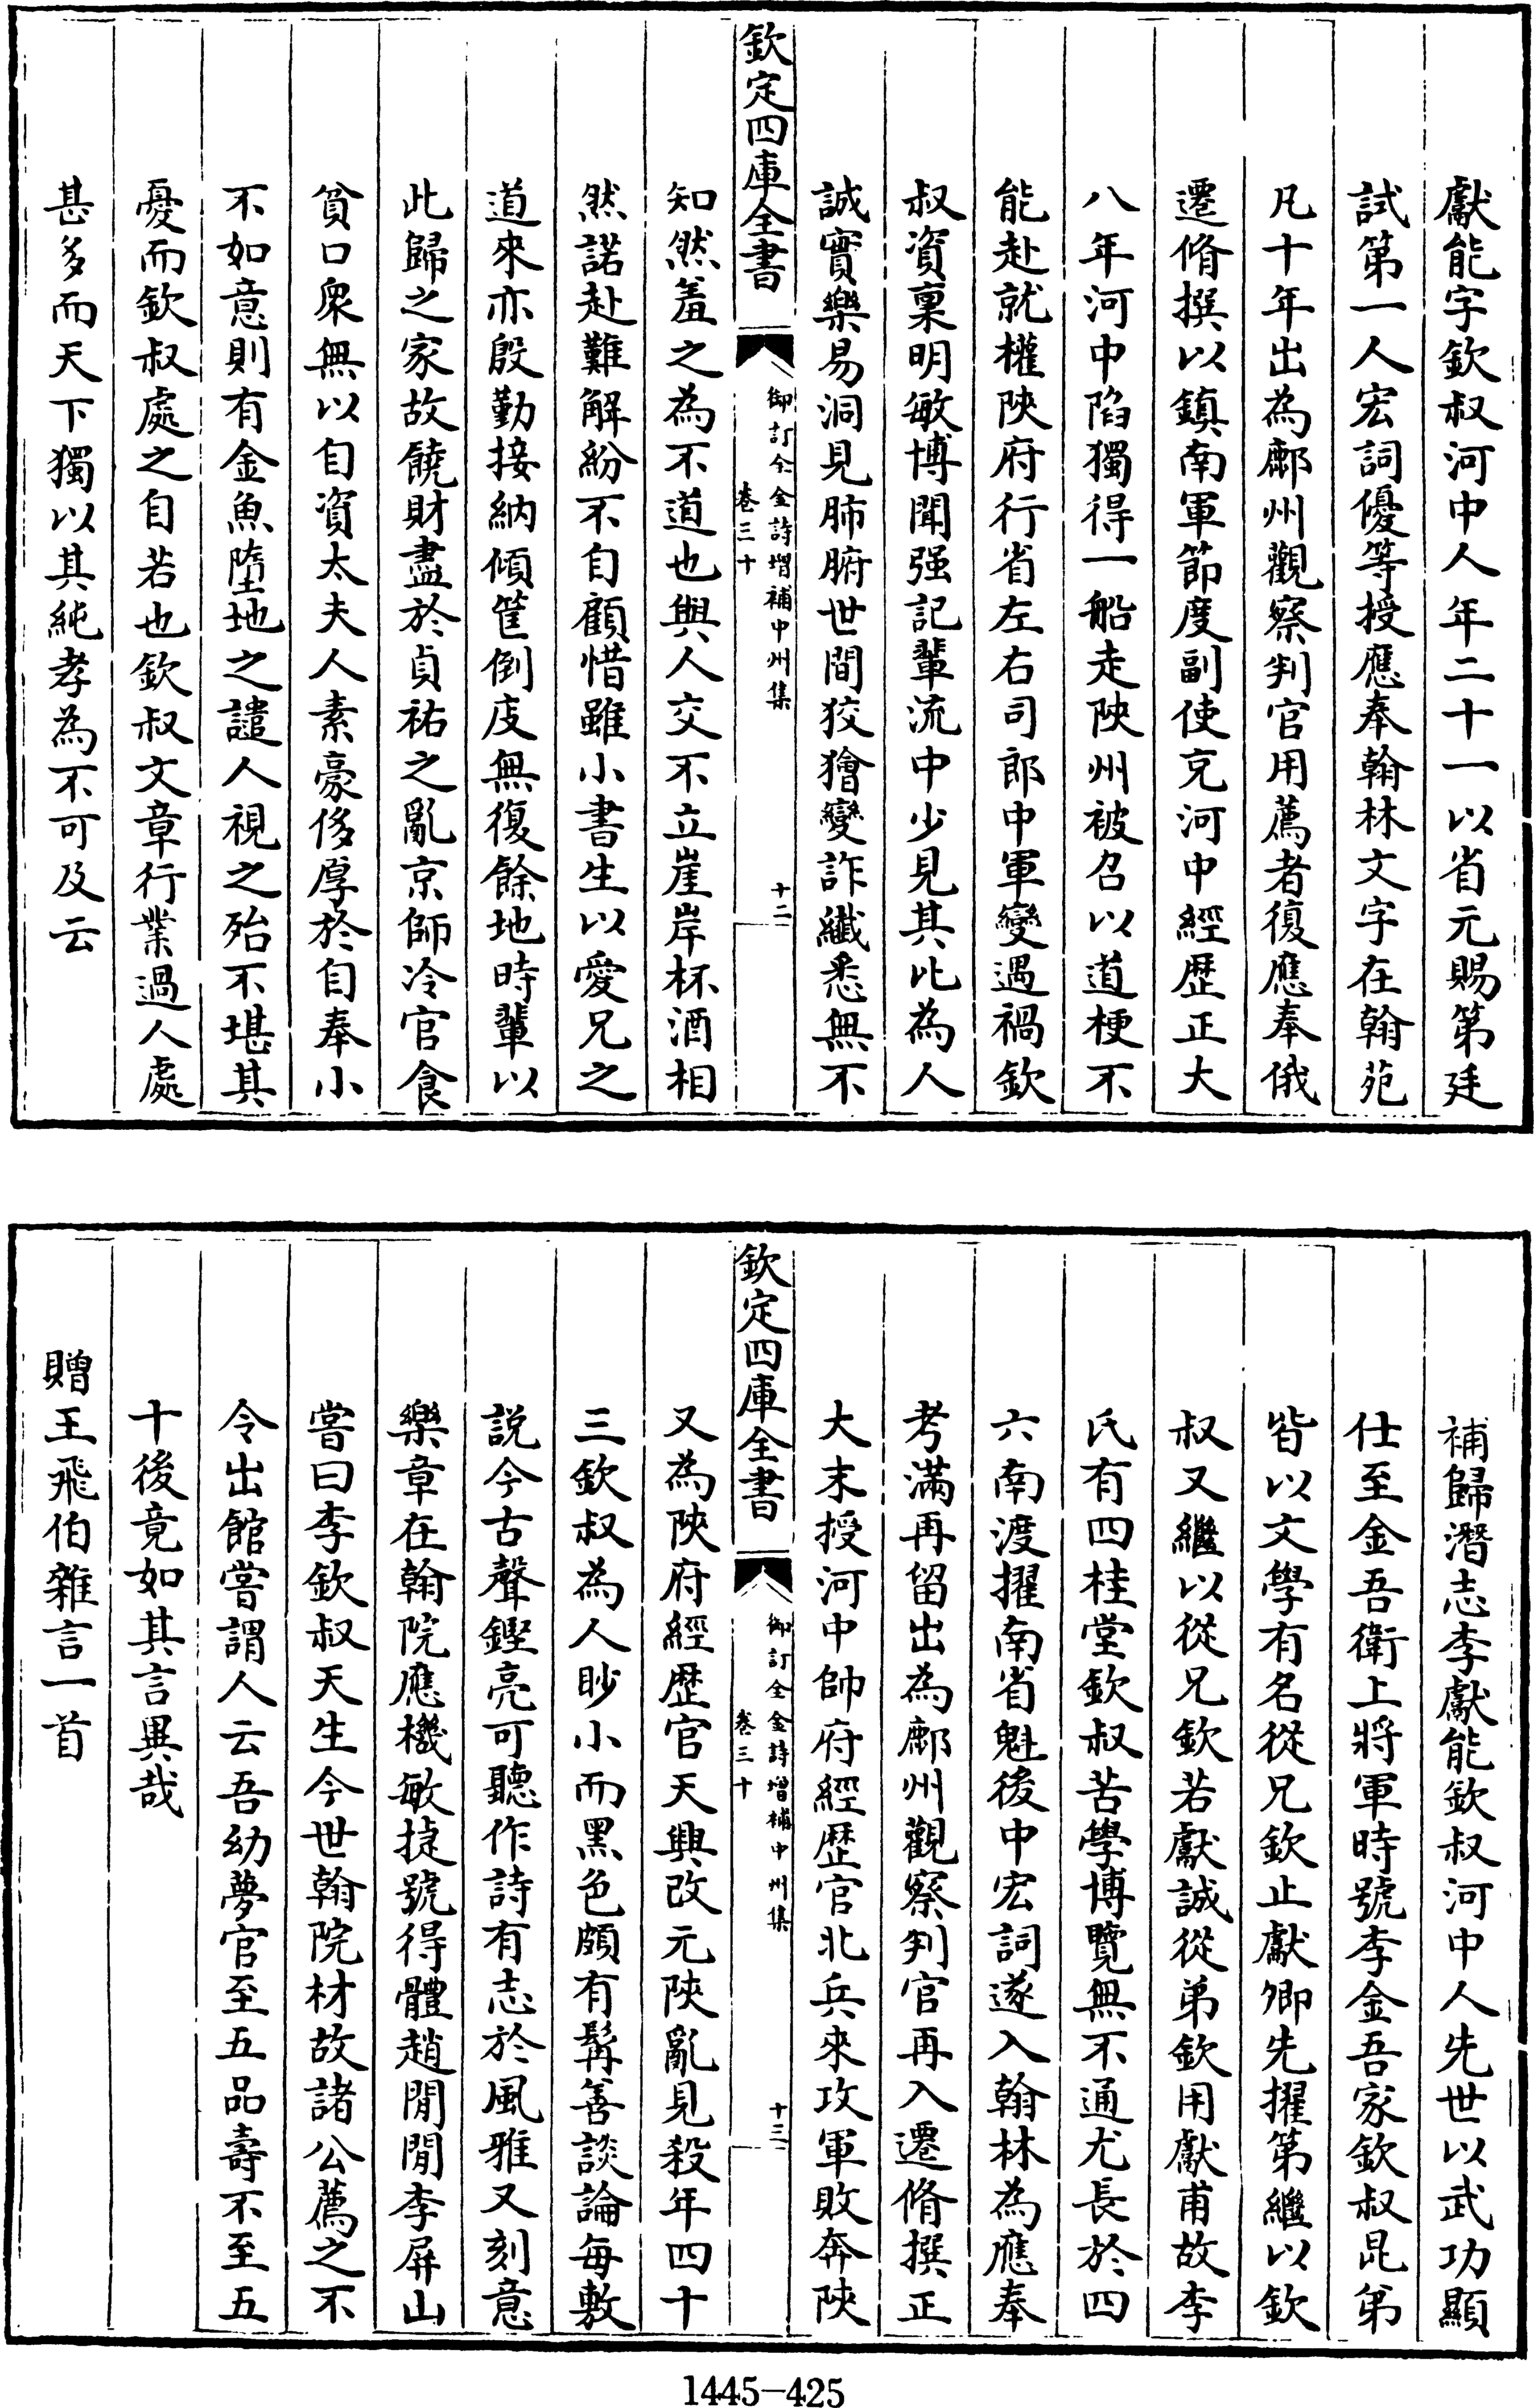 獻能字欽叔河中人年二十一以省元賜第廷
試第一人宏詞優等授應奉翰林文字在翰苑
凡十年出為鄜州觀察判官用薦者復應奉俄
遷脩撰以鎮南軍節度副使充河中經歴正大
八年河中陷獨得一船走陜州被召以道梗不
能赴就權陜府行省左右司郎中軍變遇禍欽
叔資稟明敏博聞强記輩流中少見其比為人
誠實樂易洞見肺腑世間狡獪變詐纖悉無不
欽定四庫全書
御訂全金詩增補中州集
卷三十
十二
知然羞之為不道也與人交不立崖岸杯酒相
然諾赴難解紛不自顧惜雖小書生以愛兄之
道來亦殷勤接納傾筐倒庋無復餘地時輩以
此歸之家故饒財盡於貞祐之亂京師冷官食
貧口衆無以自資太夫人素豪侈厚於自奉小
不如意則有金魚墮地之譴人視之殆不堪其
憂而欽叔處之自若也欽叔文章行業過人處
甚多而天下獨以其純孝為不可及云
補歸潛志李獻能欽叔河中人先世以武功顯
仕至金吾衛上將軍時號李金吾家欽叔昆弟
皆以文學有名從兄欽止獻卿先擢第繼以欽
叔又繼以從兄欽若獻誠從弟欽用獻甫故李
氏有四桂堂欽叔苦學博覽無不通尤長於四
六南渡擢南省魁後中宏詞遂入翰林為應奉
考滿再留出為鄜州觀察判官再入遷脩撰正
大末授河中帥府經歴官北兵來攻軍敗奔陜
欽定四庫全書
御訂全金詩增補中州集
卷三十
十三
又為陜府經歴官天興改元陜亂見殺年四十
三欽叔為人眇小而黑色頗有髯善談論每敷
説今古聲鏗亮可聽作詩有志於風雅又刻意
樂章在翰院應機敏捷號得體趙閒閒李屏山
嘗曰李欽叔天生今世翰院材故諸公薦之不
令出館嘗謂人云吾幼夢官至五品壽不至五
十後竟如其言異哉
贈王飛伯雜言一首
1445-425